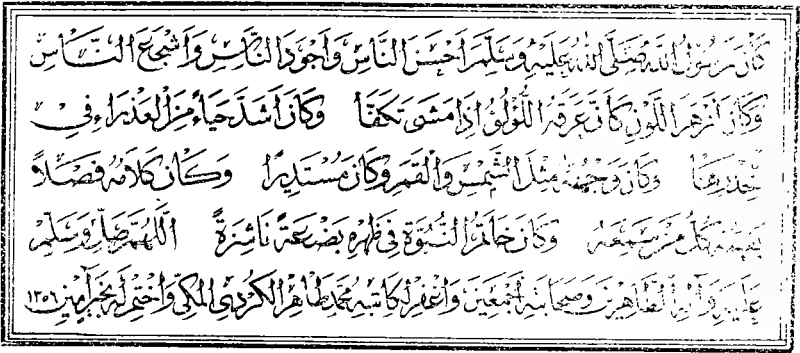 كَانَ رَسُولُ اللهِ صَلَّى اللهُ عَلَيْهِ وَسَلَّمَ أَحْسَنَ النَّاسِ وَأَجْوَدَ النَّاسِ وَأَشْجَعَ النَّاسِ
وَكَانَ أَزْهَرَ اللَّوْنِ كَأَنَّ عَرَقَهُ اللُّؤْلُؤُ إِذَا مَشَى تَكَفَّأَ وَكَانَ أَشَدَّ حَيَاءً مِنَ الْعَذْرَاءِ فِي
خِدْرِهَا وَكَانَ وَجْهُهُ مِثْلَ الشَّمْسِ وَالْقَمَرِ وَكَانَ مُسْتَدِيرًا وَكَانَ كَلَامُهُ فَصْلًا
يَفْهَمُهُ كُلُّ مَنْ سَمِعَهُ وَكَانَ خَاتَمُ النُّبُوَّةِ فِي ظَهْرِهِ بَضْعَةً نَاشِزَةً اللَّهُمَّ صَلِّ وَسَلِّمْ
عَلَيْهِ وَآلِهِ الطَّاهِرِينَ وَصَحَابَتِهِ أَجْمَعِينَ وَاغْفِرْ لِكَاتِبِهِ مُحَمَّد طَاهِر الْكُرْدِي الْمَكِّي وَاخْتِمْ لَهُ بِخَيْرٍ آمِين ١٣٥٦